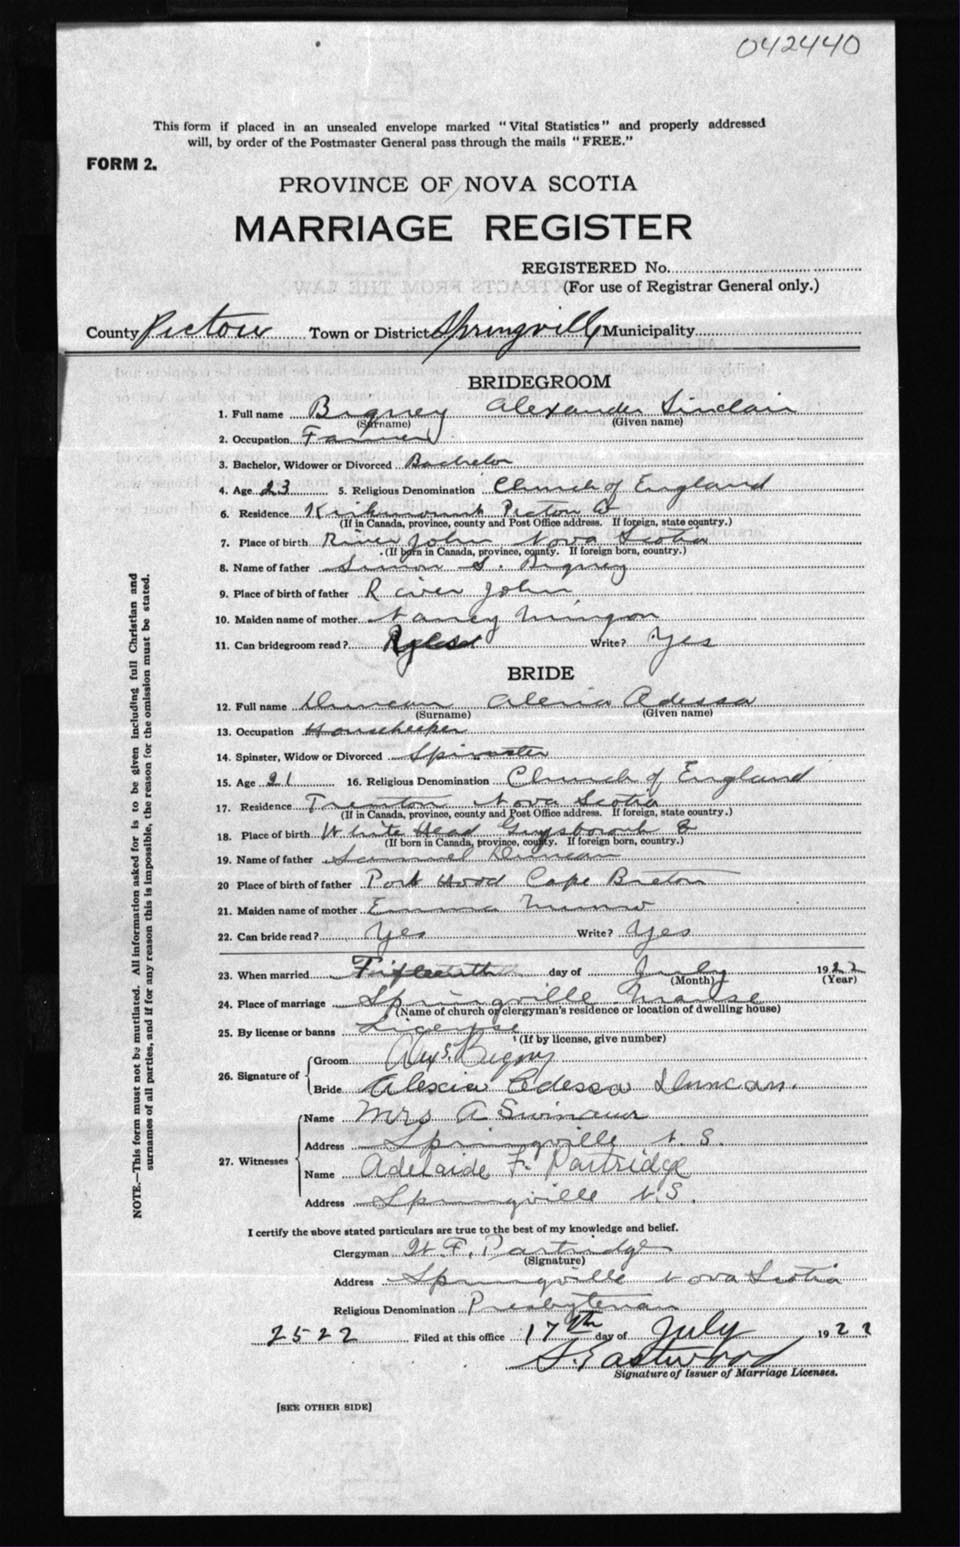 042440
This form if placed in an unsealed envelope marked "Vital Statistics" and properly addressed
will, by order of the Postmaster General pass through the mails "FREE."
FORM 2.
PROVINCE OF NOVA SCOTIA
MARRIAGE REGISTER
REGISTERED No.
(For use of Registrar General only.)
County Pictou Town or District Springville Municipality
BRIDEGROOM
1. Full name Bigney Alexander Sinclair
(Surname) (Given name)
2. Occupation Farmer
3. Bachelor, Widower or Divorced Bachelor
4. Age 23 5. Religious Denomination Church of England
6. Residence Kirkmount Pictou Co
(If in Canada, province, county and Post Office address. If foreign, state country.)
7. Place of birth River John Nova Scotia
(If born in Canada, province, county. If foreign born, country.)
8. Name of father Simon S. Bigney
9. Place of birth of father River John
10. Maiden name of mother Nancy Mingon
11. Can bridegroom read? Write? Yes
BRIDE
12. Full name Duncan Adessa
(Surname) (Given name)
13. Occupation Housekeeper
14. Spinster, Widow or Divorced Spinster
15. Age 21 16. Religious Denomination Church of England
17. Residence Trenton Nova Scotia
(If in Canada, province, county and Post Office address. If foreign, state country.)
18. Place of birth White Head Guysborough Co
(If born in Canada, province, county. If foreign born, country.)
19. Name of father Samuel Duncan
20 Place of birth of father Port Hood Cape Breton
21. Maiden name of mother Emma Munro
22. Can bride read? Yes Write? Yes
23. When married Fifteenth day of July 1922
(Month) (Year)
24. Place of marriage Springville Manse
(Name of church or clergyman's residence or location of dwelling house)
25. By license or banns License
(If by license, give number)
26. Signature of
Groom Alex S. Bigney
Bride Alexia Edessa Duncan.
27. Witnesses
Name Mrs A Swinamer
Address Springville N.S.
Name Adelaide F. Partridge
Address Springville N.S.
I certify the above stated particulars are true to the best of my knowledge and belief.
Clergyman W. F. Partridge
(Signature)
Address Springville Nova Scotia
Religious Denomination Presbyterian
2522 Filed at this office 17th day of July 1922
S. Eastwood
Signature of Issuer of Marriage Licenses.
[SEE OTHER SIDE]
NOTE.—This form must not be mutilated. All information asked for is to be given including full Christian and
surnames of all parties, and if for any reason this is impossible, the reason for the omission must be stated.